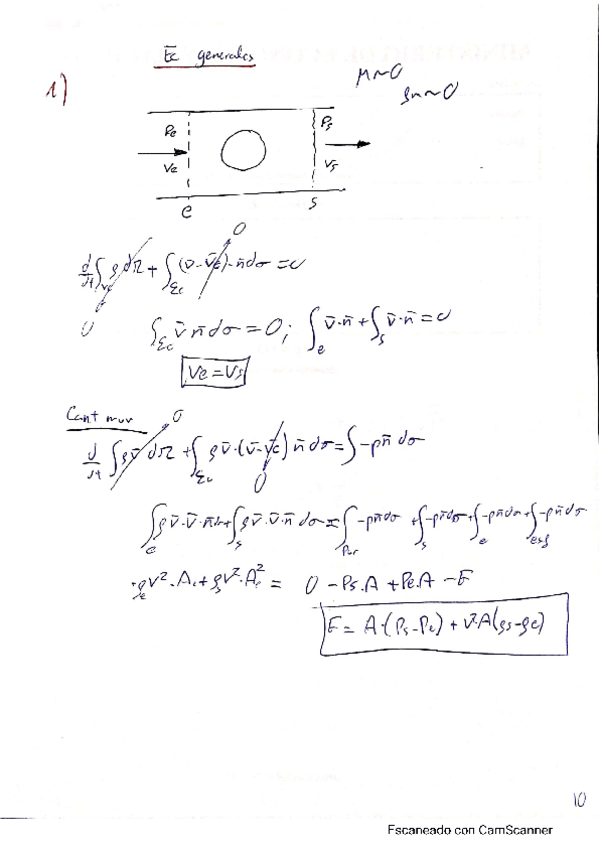 Ec generales
1)
μ~0
gm~0
Pe
Ps
Ve
Vs
e
s
0
d/dt ∫Vc ρ dΩ + ∫Σc (v̄-v̄c)·n̄ dσ = 0
0
∫Σc v̄ n̄ dσ = 0; ∫e v̄·n̄ + ∫s v̄·n̄ = 0
Ve = Vs
Cant mov
0
d/dt ∫ ρv̄ dΩ + ∫Σc ρv̄·(v̄-v̄c) n̄ dσ = ∫ -p n̄ dσ
0
∫e ρv̄·v̄·n̄ dσ + ∫s ρv̄·v̄·n̄ dσ = ∫par -pn̄dσ + ∫s -pn̄dσ + ∫e -pn̄dσ + ∫esf -pn̄dσ
-ρe V²·Ae + ρs V²·A² = 0 - Ps.A + Pe.A - F
F = A·(Ps-Pe) + V²·A(ρs-ρe)
10
Escaneado con CamScanner